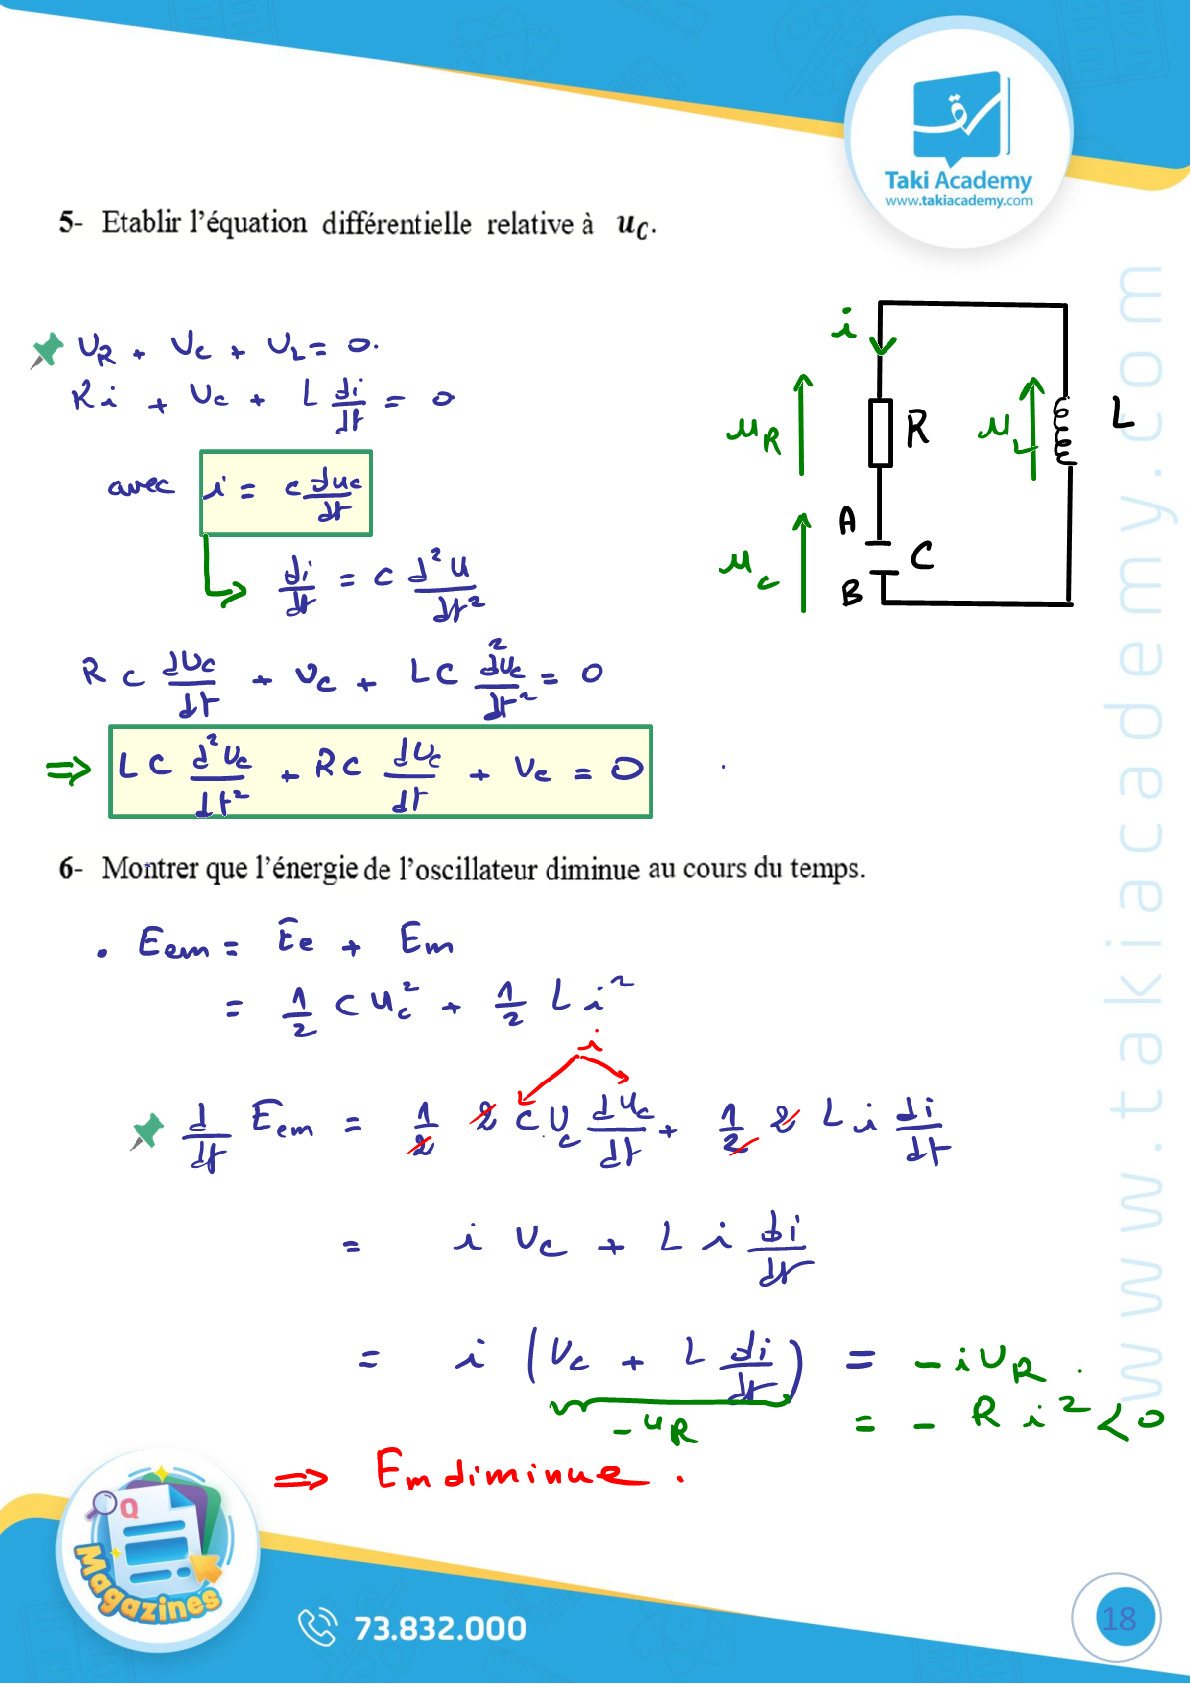 Taki Academy
www.takiacademy.com
5- Etablir l'équation différentielle relative à u_C.
U_R + U_C + U_L = 0.
Ri + U_C + L di/dt = 0
avec i = C du_C/dt
di/dt = C d²U/dt²
RC dU_C/dt + U_C + LC d²U_C/dt² = 0
⇒ LC d²U_C/dt² + RC dU_C/dt + U_C = 0
i
u_R
R
u_L
L
A
u_C
C
B
6- Montrer que l'énergie de l'oscillateur diminue au cours du temps.
. E_em = E_e + E_m
= 1/2 C u_C² + 1/2 L i²
i
d/dt E_em = 1/2 2 C U_C dU_C/dt + 1/2 2 L i di/dt
= i U_C + L i di/dt
= i (U_C + L di/dt) = - i U_R
- u_R
= - R i² < 0
⇒ Em diminue.
Q
Magazines
73.832.000
18
www.takiacademy.com